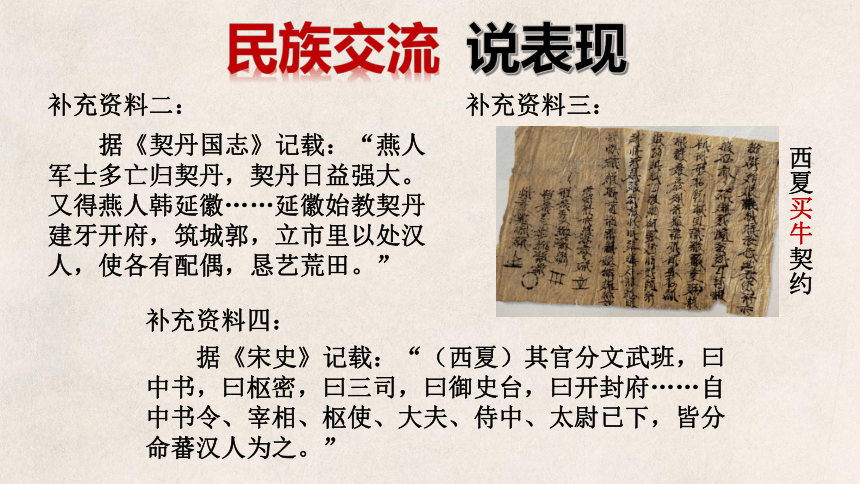 民族交流 说表现
补充资料二：
据《契丹国志》记载：“燕人
军士多亡归契丹，契丹日益强大。
又得燕人韩延徽……延徽始教契丹
建牙开府，筑城郭，立市里以处汉
人，使各有配偶，恳艺荒田。”
补充资料三：
西夏买牛契约
补充资料四：
据《宋史》记载：“（西夏）其官分文武班，曰
中书，曰枢密，曰三司，曰御史台，曰开封府……自
中书令、宰相、枢使、大夫、侍中、太尉已下，皆分
命蕃汉人为之。”